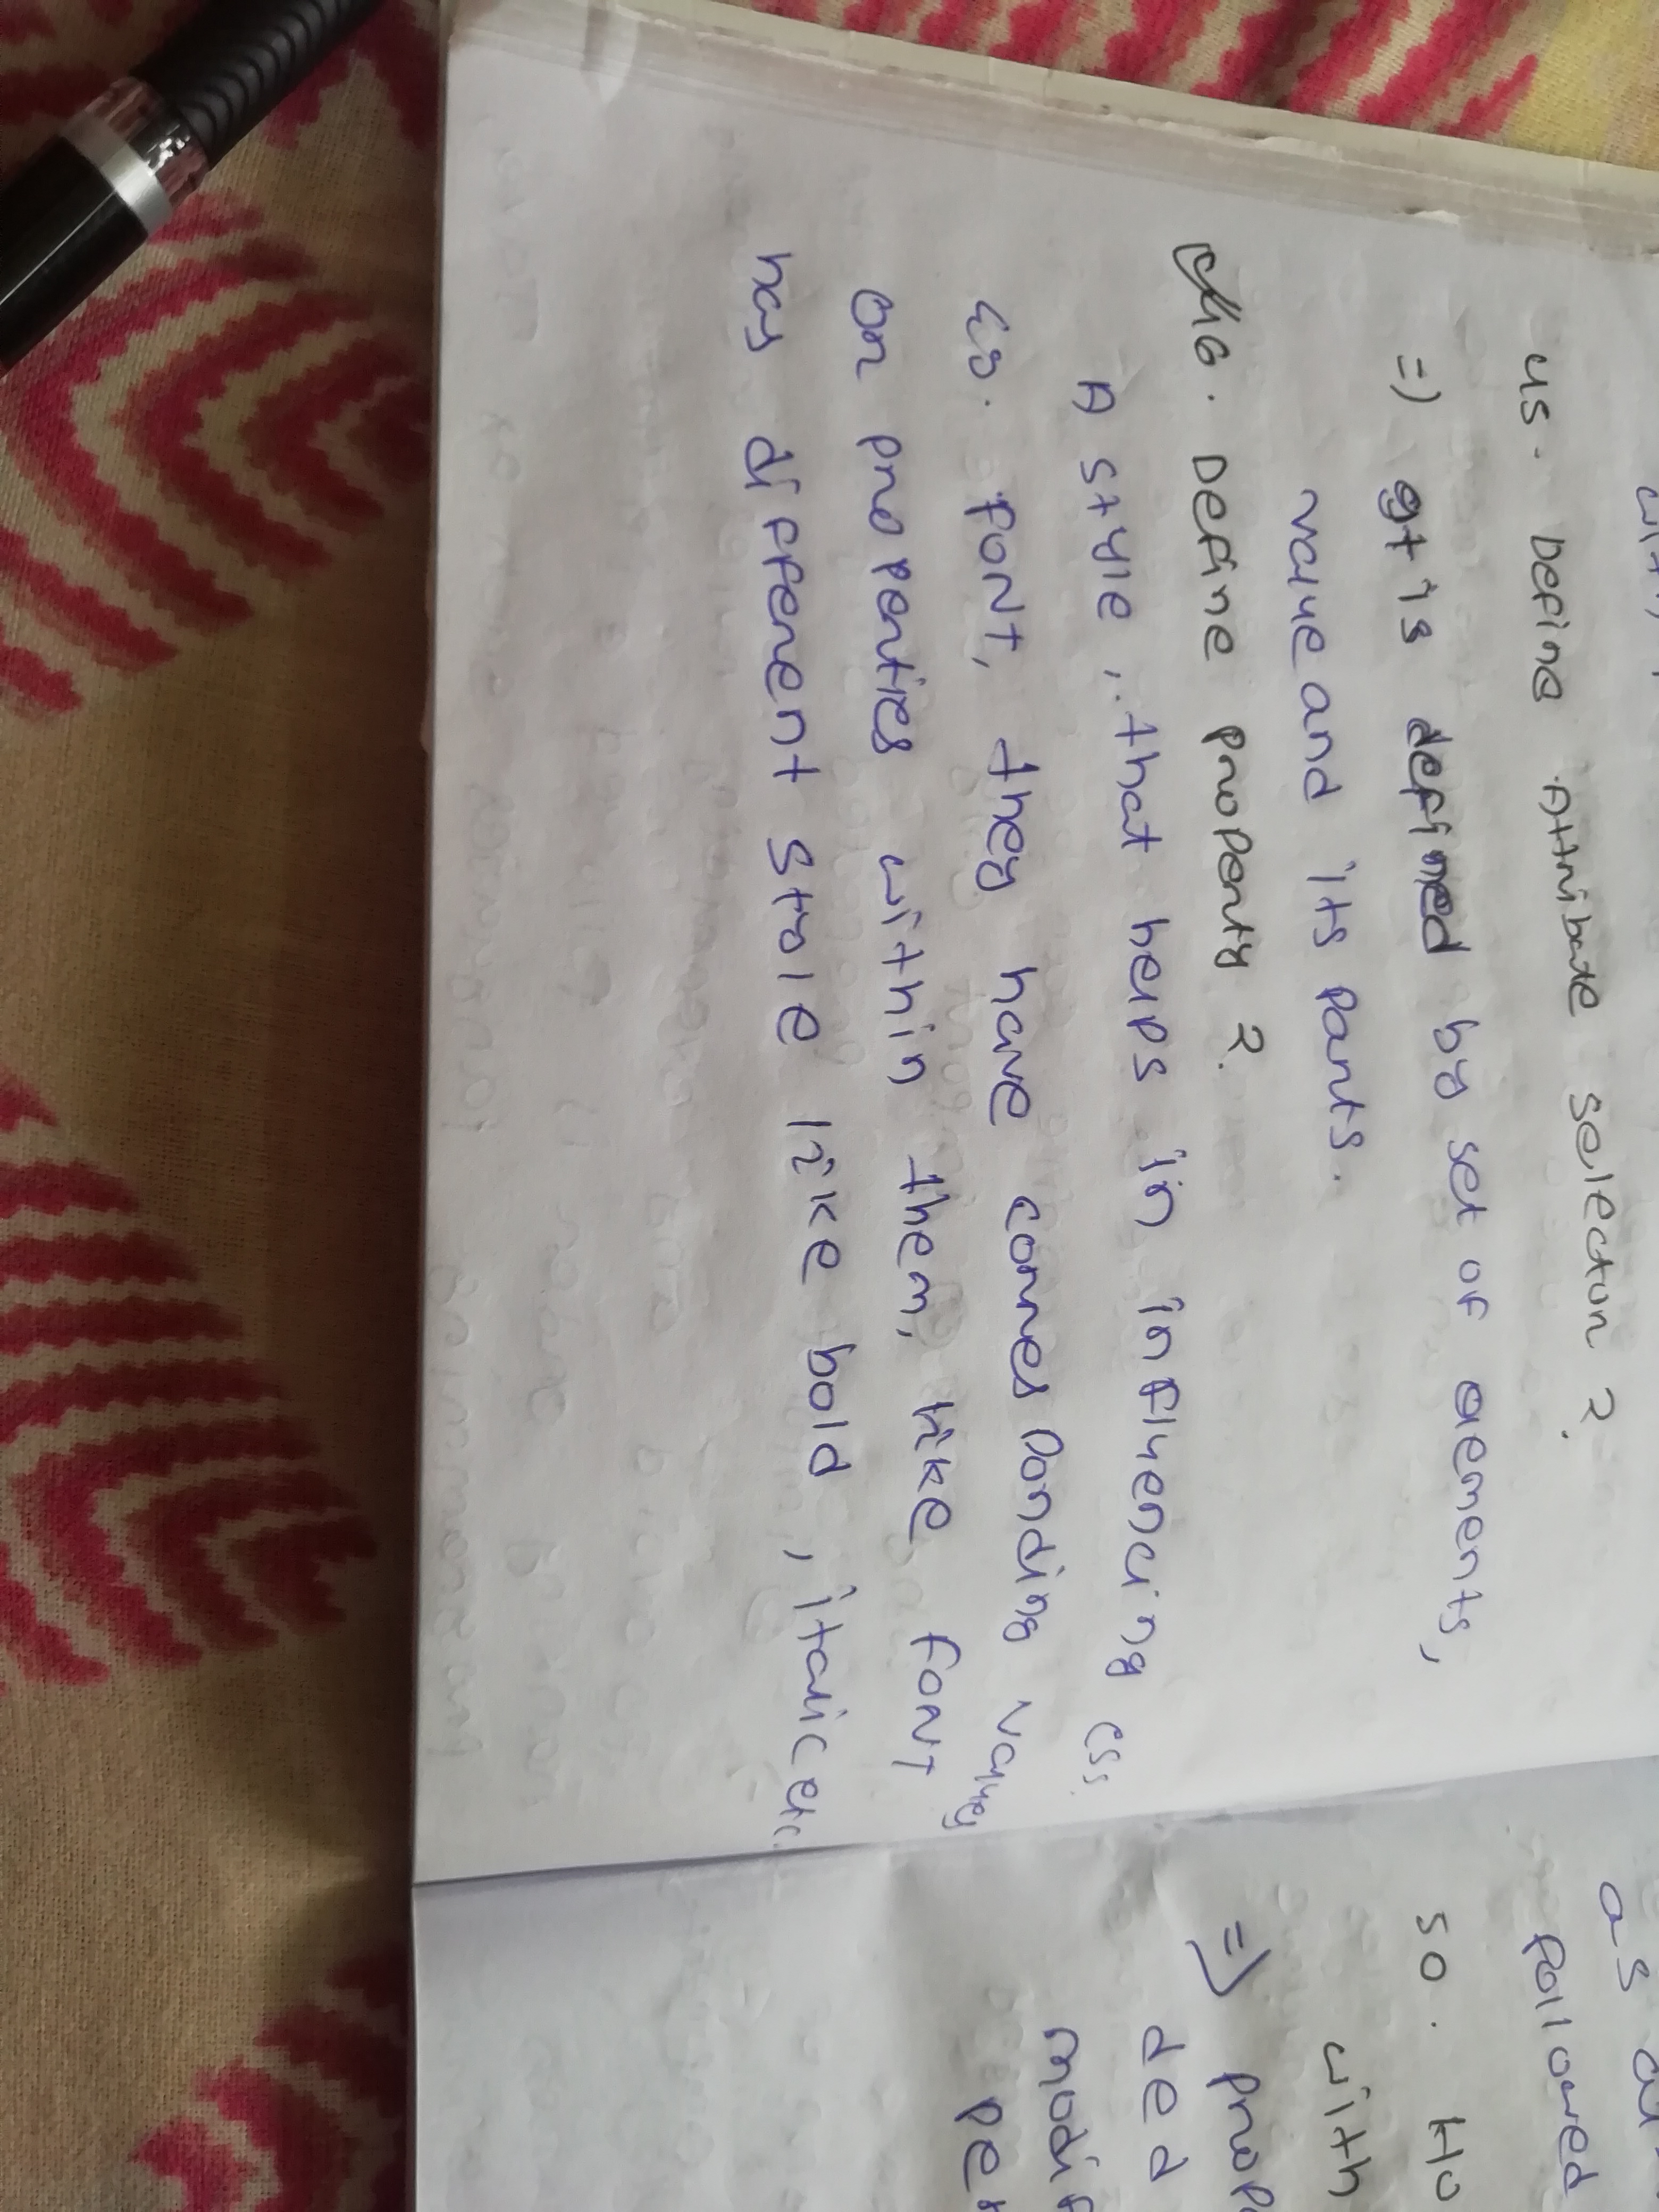 45. Define Attribute selector ?
=) It is defined by set of elements,
value and its parts.
46. Define property ?
A style, that helps in influencing css.
Eg. FONT, they have corresponding values
or properties within them, like FONT
has different style like bold, italic etc.
as
followed
50. Ho
with
=)
ded